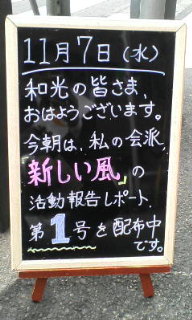 11月7日(水)
和光の皆さま、
おはようございます。
今朝は、私の会派、
新しい風」の
活動報告レポート、
第1号を配布中
です。